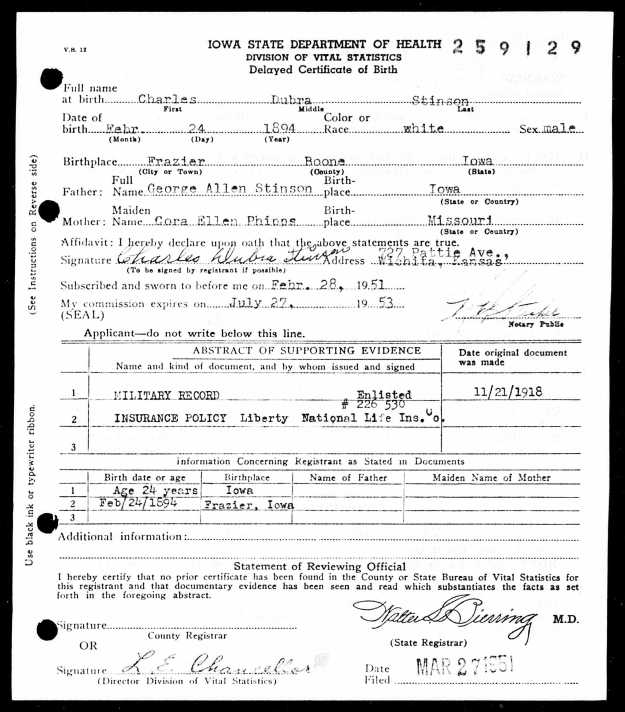 V.S. 12
IOWA STATE DEPARTMENT OF HEALTH 259129
DIVISION OF VITAL STATISTICS
Delayed Certificate of Birth
Full name
at birth Charles Dubra Stinson
First Middle Last
Date of birth Febr. 24 1894 Color or Race white Sex male
(Month) (Day) (Year)
Birthplace Frazier Boone Iowa
(City or Town) (County) (State)
Father: Full Name George Allen Stinson Birthplace Iowa
(State or Country)
Mother: Maiden Name Cora Ellen Phipps Birthplace Missouri
(State or Country)
Affidavit: I hereby declare upon oath that the above statements are true.
Signature Charles Dubra Stinson Address 727 Pattie Ave., Wichita, Kansas
(To be signed by registrant if possible)
Subscribed and sworn to before me on Febr. 28, 1951
My commission expires on July 27, 1953
(SEAL)
Notary Public
Applicant—do not write below this line.
ABSTRACT OF SUPPORTING EVIDENCE
Name and kind of document, and by whom issued and signed
Date original document was made
1 MILITARY RECORD Enlisted 11/21/1918
# 226 530
2 INSURANCE POLICY Liberty National Life Ins. Co.
3
Information Concerning Registrant as Stated in Documents
Birth date or age Birthplace Name of Father Maiden Name of Mother
1 Age 24 years Iowa
2 Feb/24/1894 Frazier, Iowa
3
Additional information:
Statement of Reviewing Official
I hereby certify that no prior certificate has been found in the County or State Bureau of Vital Statistics for
this registrant and that documentary evidence has been seen and read which substantiates the facts as set
forth in the foregoing abstract.
Signature
County Registrar
Walter L Bierring M.D.
(State Registrar)
OR
Signature L. E. Chancellor
(Director Division of Vital Statistics)
Date Filed MAR 27 1951
(See Instructions on Reverse side)
Use black ink or typewriter ribbon.